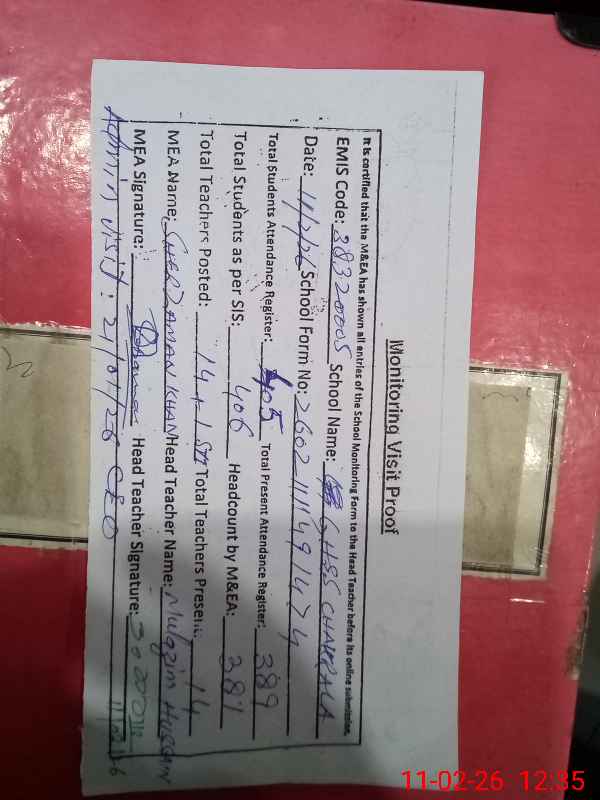 Monitoring Visit Proof
It is certified that the M&EA has shown all entries of the School Monitoring Form to the Head Teacher before its online submission.
EMIS Code: 38320005 School Name: GHSS CHAKRALA
Date: 11/2/26 School Form No: 26021111491474
Total Students Attendance Register: 405 Total Present Attendance Register: 389
Total Students as per SIS: 406 Headcount by M&EA: 387
Total Teachers Posted: 14+1 Total Teachers Present: 14
MEA Name: SHERZAMAN KHAN Head Teacher Name: Mulazim HUSSAIN
MEA Signature: Head Teacher Signature:
11/02/26
Admin visit: 21/01/26 CEO
11-02-26 12:35